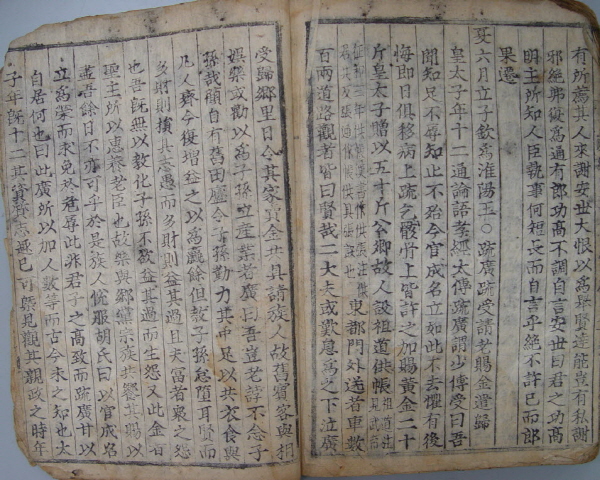 有所薦其人來謝安世大恨以爲擧賢達能豈有私謝
邪絶弗復爲通有郎功高不調自言安世曰君之功高
明主所知人臣執事何短長而自言乎絶不許已而郎
果遷
六月立子欽爲淮陽王○疏廣疏受請老賜金遣歸
皇太子年十二通論語孝經太傅疏廣謂少傅受曰吾
聞知足不辱知止不殆今官成名立如此不去懼有後
悔即日俱移病上疏乞骸骨上皆許之加賜黃金二十
斤皇太子贈以五十斤公卿故人設祖道供帳
東都門外送者車數
百兩道路觀者皆曰賢哉二大夫或歎息爲之下泣廣
受歸鄉里日令其家賣金共具請族人故舊賓客與相
娯樂或勸以爲子孫立産業者廣曰吾豈老誖不念子
孫哉顧自有舊田廬令子孫勤力其中足以共衣食與
凡人齊今復增益之以爲贏餘但敎子孫怠墮耳賢而
多財則損其志愚而多財則益其過且夫富者衆之怨
也吾旣無以敎化子孫不欲益其過而生怨又此金者
聖主所以惠養老臣也故樂與鄉黨宗族共饗其賜以
盡吾餘日不亦可乎於是族人悅服胡氏曰以官成名
立爲榮而求免於危辱此非君子之高致而疏廣甘以
自居何也曰此廣所以加人數等而古今未之知也太
子年旣十二其資質志趣已可槩見觀其親政之時年